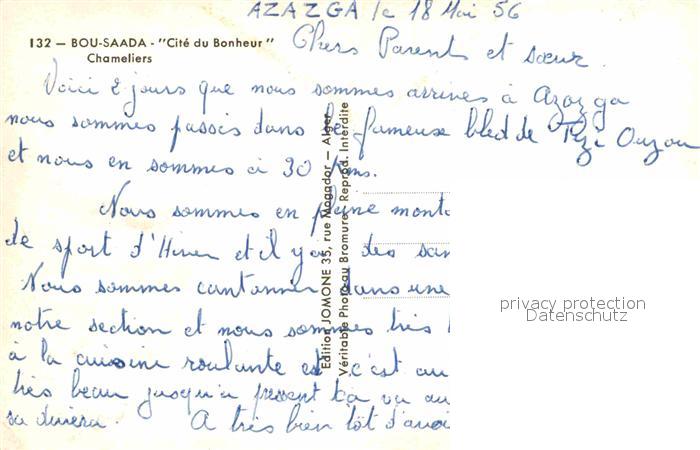 AZAZGA le 18 Mai 56
132 — BOU-SAADA - "Cité du Bonheur"
Chameliers
Chers Parents et sœur
Voici 2 jours que nous sommes arrivés à Azazga
nous sommes passés dans le fameuse bled de Tizi Ouzou
et nous en sommes à 30 Kms.
Nous sommes en pleine mont
de sport d'Hiver et il y a des
Nous sommes cantonner dans une
notre section et nous sommes très
à la cuisine roulante et c'est au
très beau jusqu'a présent ça va au
sa durera. A très bien tôt d'avoi
Edition JOMONE 35, rue Mogador — Alger
Véritable Photo au Bromure - Reprod. Interdite
privacy protection
Datenschutz